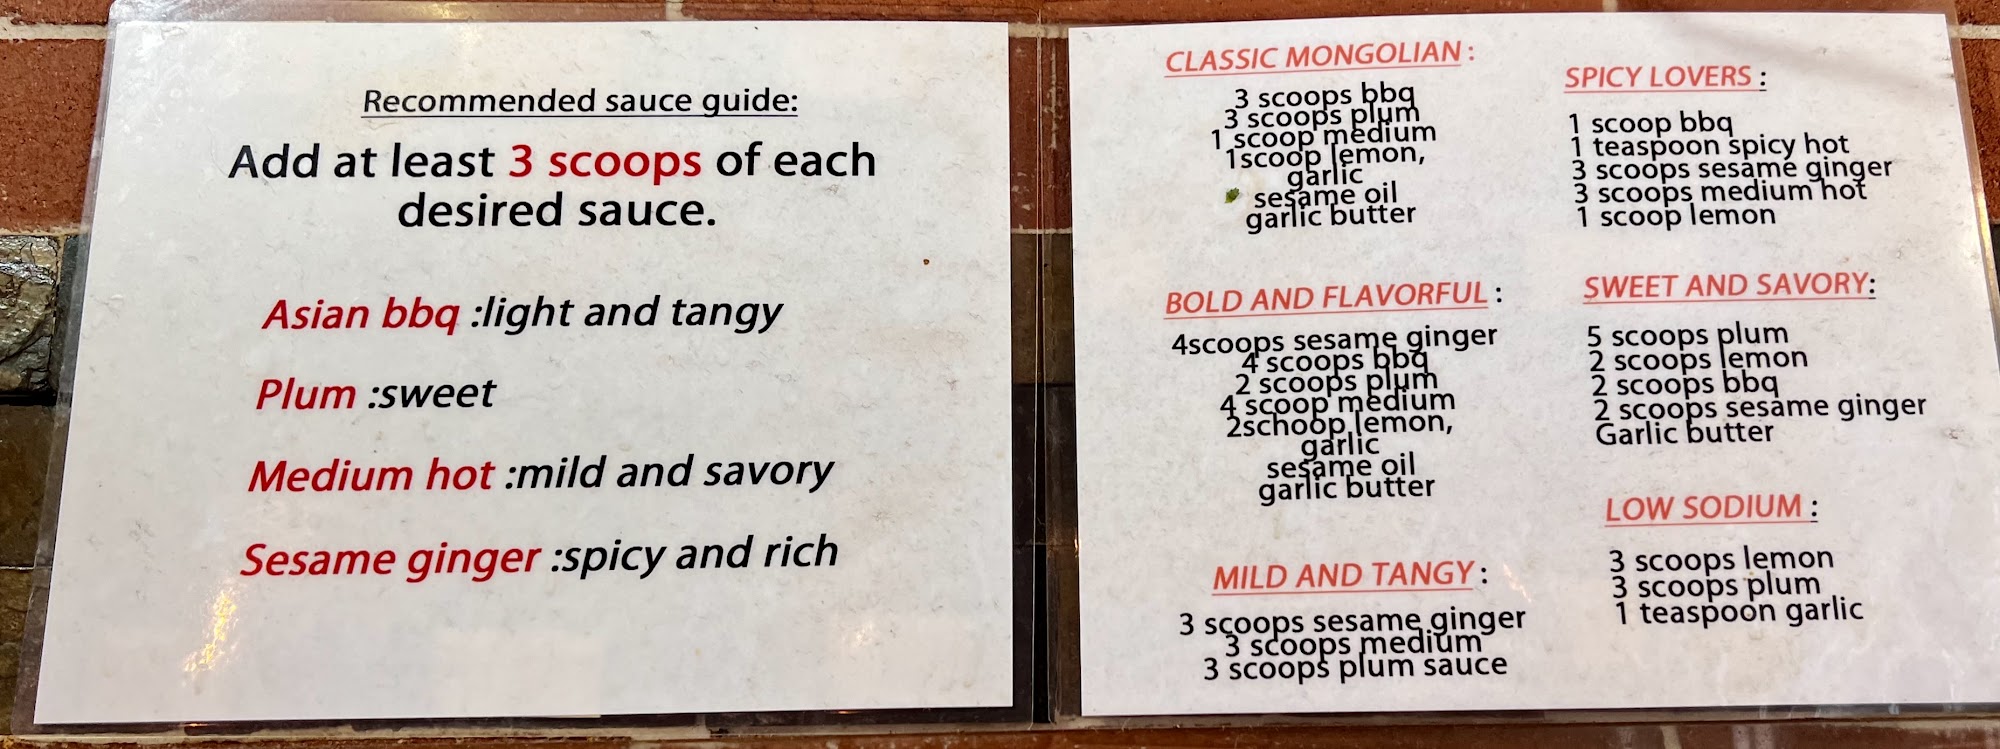 Recommended sauce guide:
Add at least 3 scoops of each
desired sauce.
Asian bbq :light and tangy
Plum :sweet
Medium hot :mild and savory
Sesame ginger :spicy and rich
CLASSIC MONGOLIAN :
3 scoops bbq
3 scoops plum
1 scoop medium
1scoop lemon,
garlic
sesame oil
garlic butter
BOLD AND FLAVORFUL :
4scoops sesame ginger
4 scoops bbq
2 scoops plum
4 scoop medium
2schoop lemon,
garlic
sesame oil
garlic butter
MILD AND TANGY :
3 scoops sesame ginger
3 scoops medium
3 scoops plum sauce
SPICY LOVERS :
1 scoop bbq
1 teaspoon spicy hot
3 scoops sesame ginger
3 scoops medium hot
1 scoop lemon
SWEET AND SAVORY:
5 scoops plum
2 scoops lemon
2 scoops bbq
2 scoops sesame ginger
Garlic butter
LOW SODIUM :
3 scoops lemon
3 scoops plum
1 teaspoon garlic